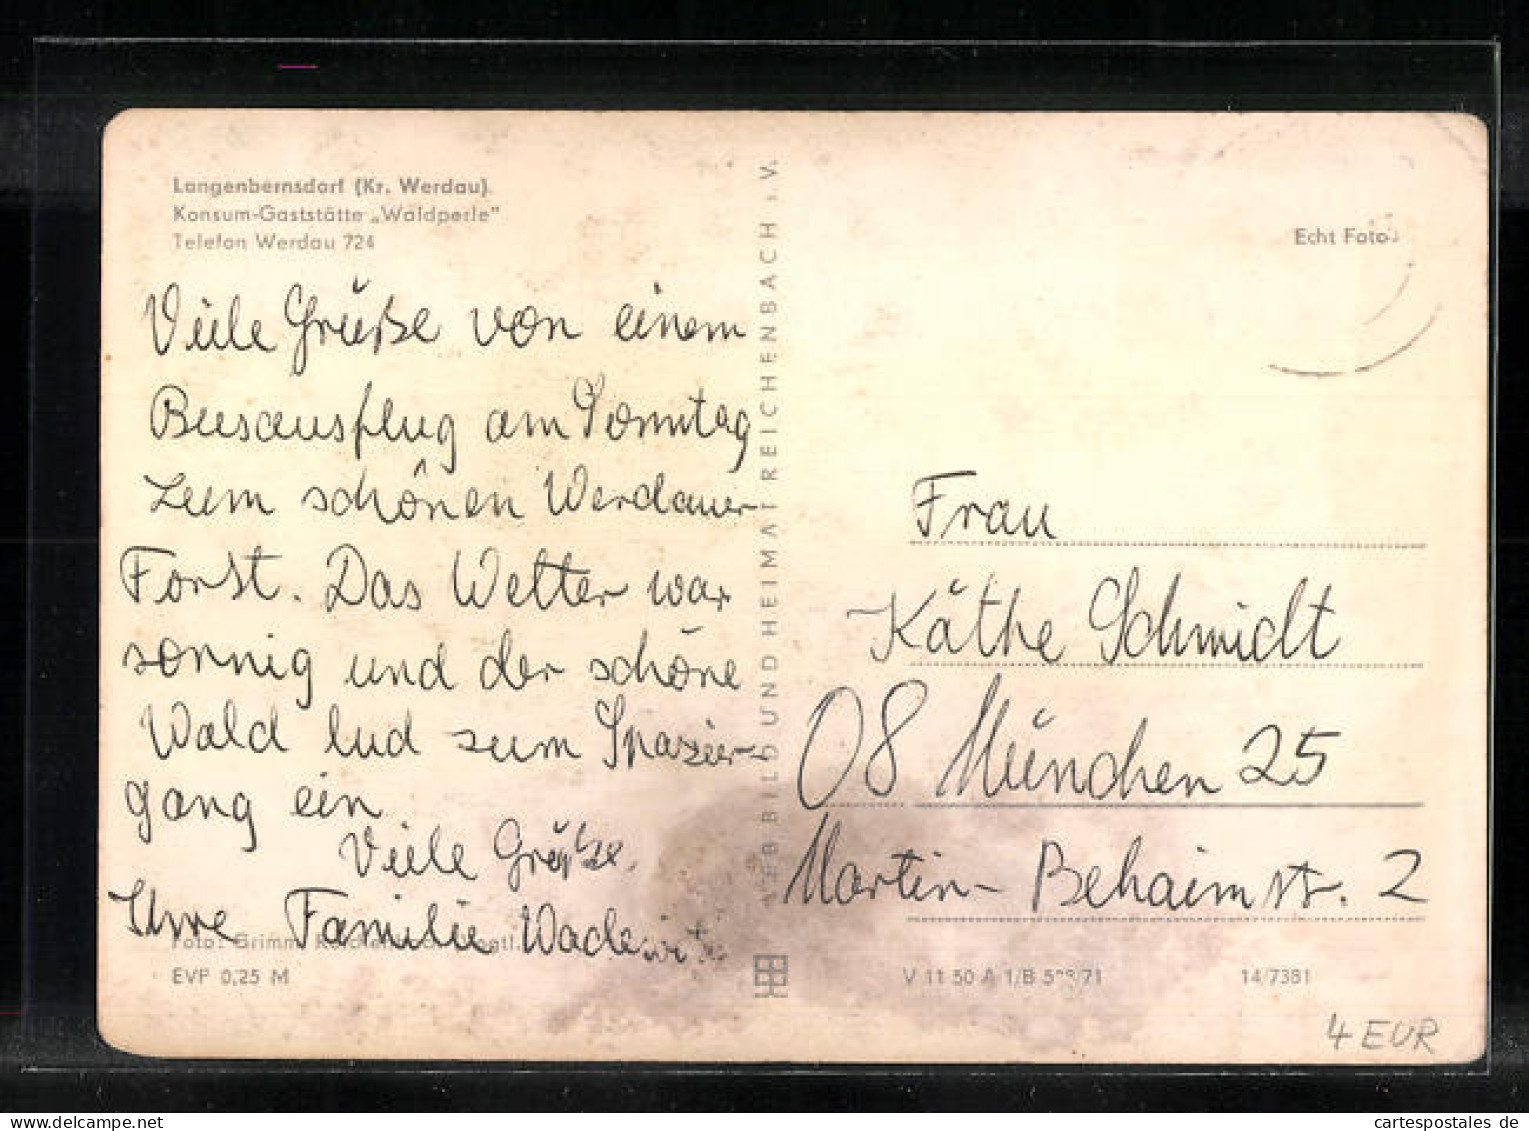 Langenbernsdorf (Kr. Werdau)
Konsum-Gaststätte „Waldperle"
Telefon Werdau 724
Viele Grüße von einem
Busausflug am Sonntag
zum schönen Werdauer
Forst. Das Wetter war
sonnig und der schöne
Wald lud zum Spazier-
gang ein
Viele Grüße.
Ihre Familie
Foto: Grimm,
EVP 0,25 M
BILD UND HEIMAT REICHENBACH i. V.
Echt Foto
Frau
Käthe Schmidt
08 München 25
Martin-Behaimstr. 2
V 11 50 A 1/B 14/7381
4 EUR
cartespostales de